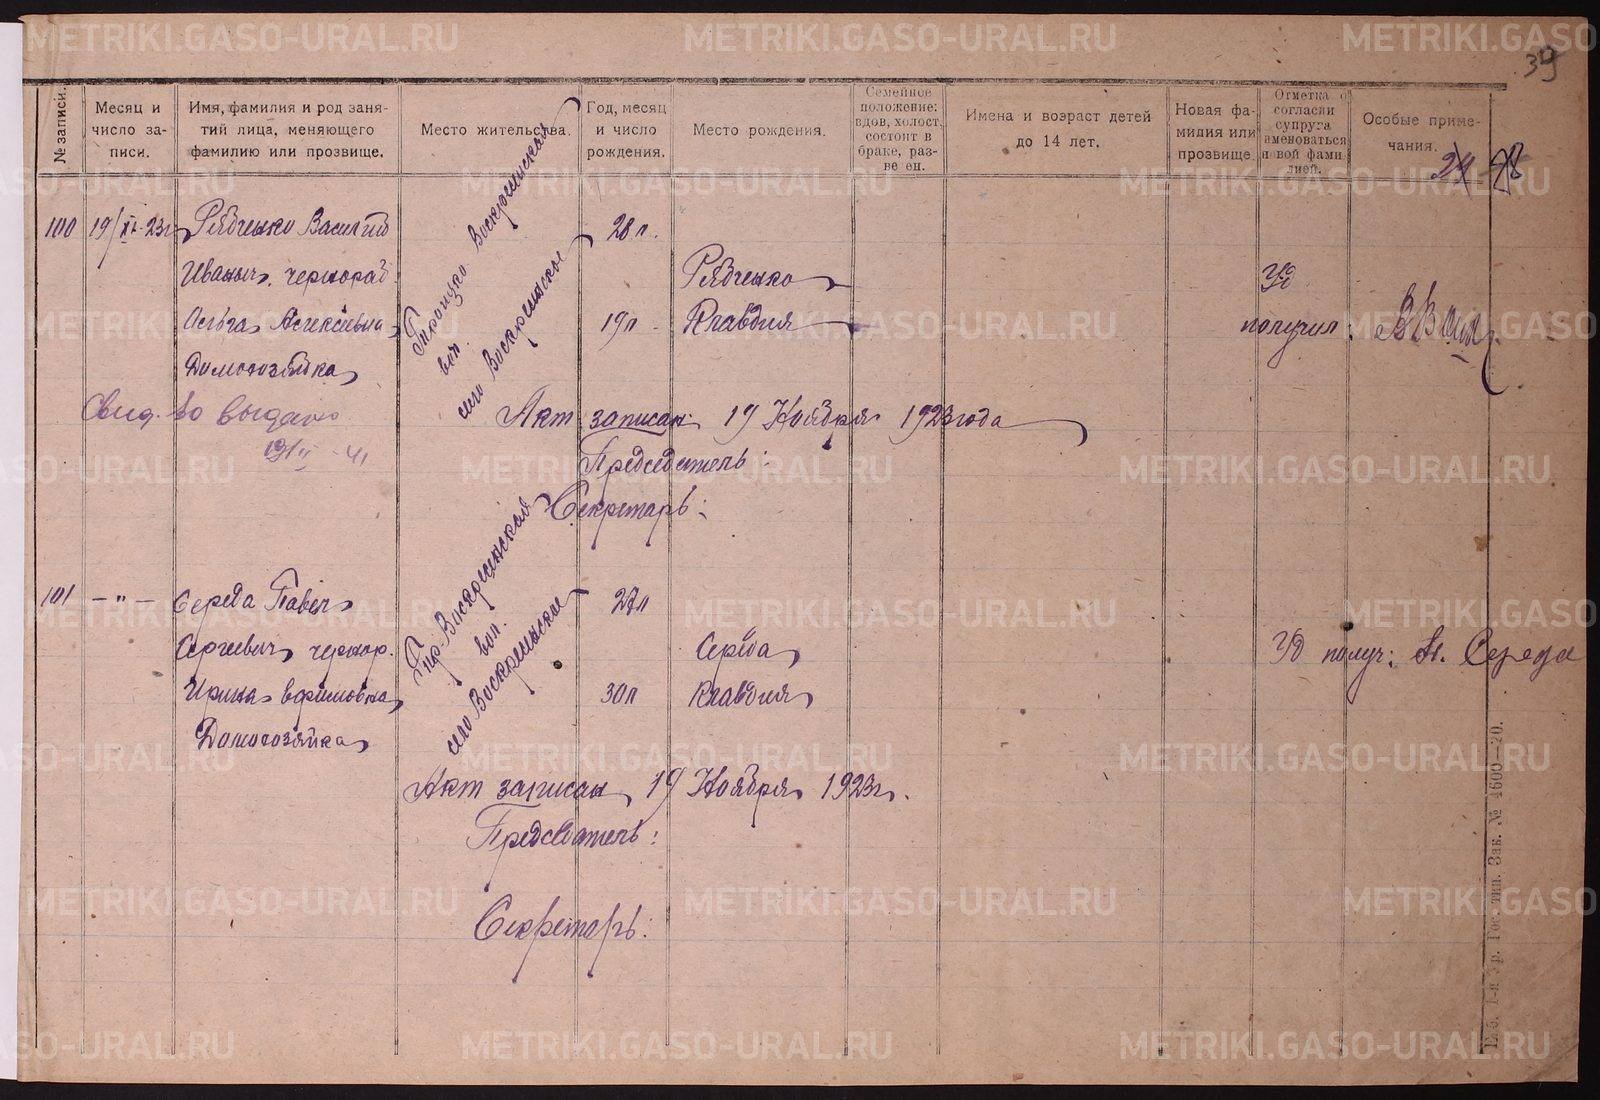 METRIKI.GASO-URAL.RU
39
№ записи.
Месяц и число записи.
Имя, фамилия и род занятий лица, меняющего фамилию или прозвище.
Место жительства.
Год, месяц и число рождения.
Место рождения.
Семейное положение: вдов, холост, состоит в браке, разве ен.
Имена и возраст детей до 14 лет.
Новая фамилия или прозвище
Отметка о согласии супруга именоваться новой фамилией.
Особые примечания.
100 19/XI-23г Рябченко Василий 28 л.
Иваныч. чернораб Рябченко Уд
Ольга Алексеевна 19 л Клавдия получил:
Домохозяйка
Троицко Воскресенская
вол.
село Воскресенское
Свид-во выдано Акт записан 19 Ноября 1923 года
Председатель:
Секретарь:
101 —"— Середа Павел 27 л
Сергиевич чернор. Середа Уд получ: П. Середа
Ирина Ефимовна 30 л Клавдия
Домохозяйка
Тр-Воскресенская
вол.
село Воскресенское
Акт записан 19 Ноября 1923 г.
Председатель:
Секретарь:
Зак. № 4600—20.